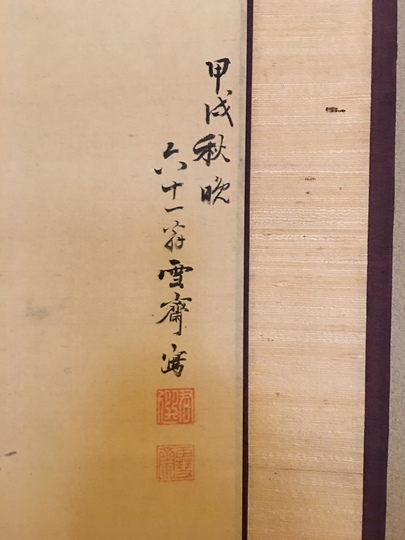 甲戌秋晩
六十一翁雪齋寫